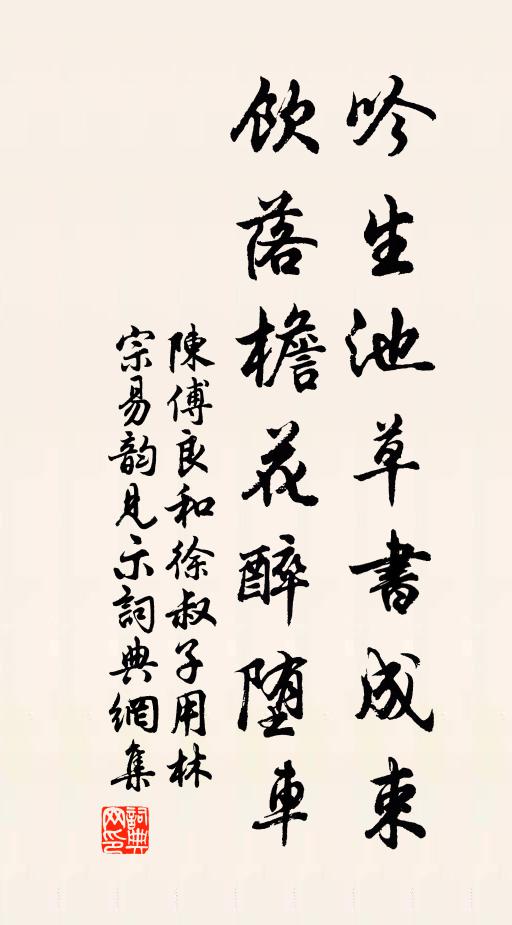 吟生池草書成束
飲落檐花醉堕車
陳傅良和徐叔子用林
宗易韵見示詞典網集
詞典網印